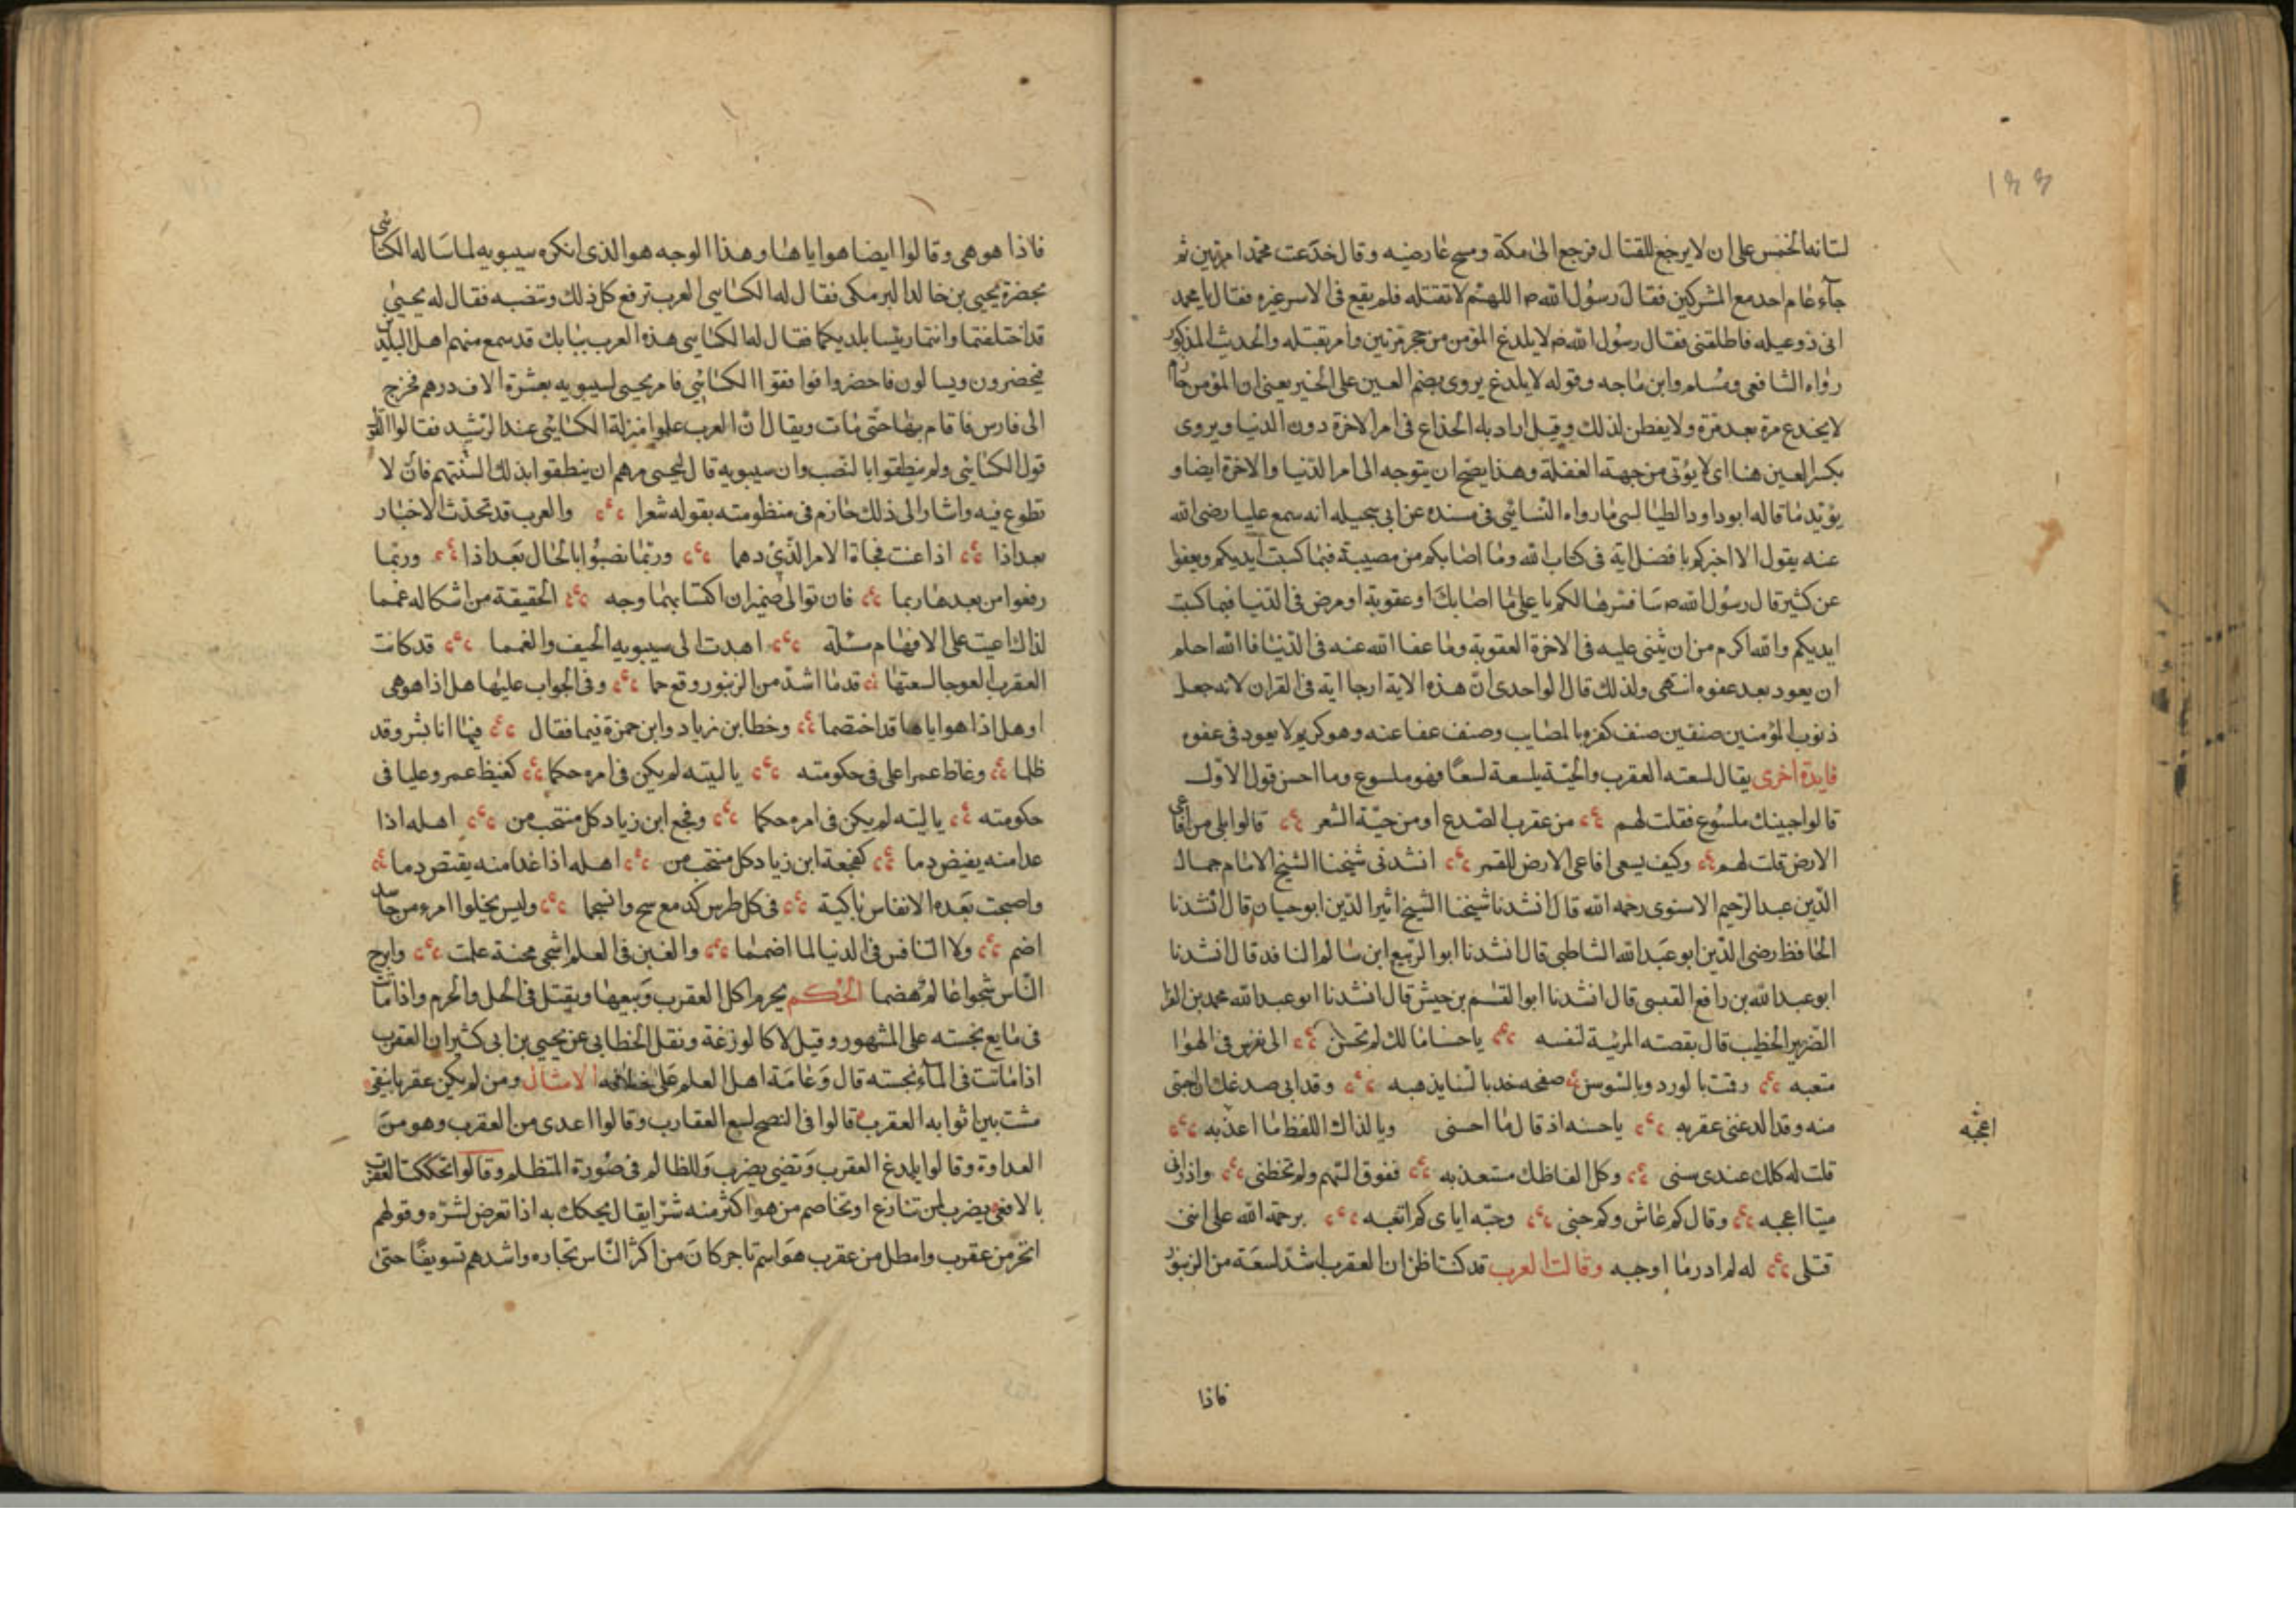 ١٤٤
لبناته الخمس على ان لا يرجع للقتال فرجع الى مكة ومسح عارضيه وقال خدعت محمدا مرتين ثم
جآء عام احد مع المشركين فقال رسول الله ص اللهم لا تفتله فلم يقع فى الاسر غيره فقال يا محمد
انى ذو عيله فاطلقنى فقال رسول الله ص لا يلدغ المؤمن من جحر مرتين وامر بقتله والحديث المذكور
رواه الشافعى ومسلم وابن ماجه وقوله لا يلدغ يروى بضم العين على الخبر يعنى ان المؤمن حازم
لا يخدع مرة بعد مرة ولا يفطن لذلك وقيل اراد به الخداع فى امر الاخرة دون الدنيا ويروى
بكسر العين هنا اى لا يؤتى من جهة الغفلة وهذا يصح ان يتوجه الى امر الدنيا والاخرة ايضا و
يؤيد ما قاله ابو داود الطيالسى ما رواه النسائى فى مسنده عن ابى سحيله انه سمع عليا رضى الله
عنه يقول الا اخبركم بافضل اية فى كتاب الله وما اصابكم من مصيبة فبما كسبت ايديكم ويعفوا
عن كثير قال رسول الله ص سافسرها لكم يا على ما اصابك او عقوبة او مرض فى الدنيا فبما كسبت
ايديكم والله اكرم من ان يثنى عليه فى الاخرة العقوبة وما عفا الله عنه فى الدنيا فالله احلم
ان يعود بعد عفوه انتهى ولذلك قال الواحدى ان هذه الاية ارجا اية فى القران لانه جعل
ذنوب المؤمنين صنفين صنف كفره بالمصايب وصنف عفا عنه وهو كريم لا يعود فى عفوه
فايدة اخرى يقال لسعته العقرب والحية يلسعة لسعا فهو ملسوع وما احسن قول الاول
قالوا جبينك ملسوع فقلت لهم من عقرب الصدع او من حية الشعر قالوا بلى من افاعى
الارض قلت لهم وكيف يسعى افاعى الارض للقمر انشدنى شيخنا الشيخ الامام جمال
الدين عبد الرحيم الاسنوى رحمه الله قال انشدنا شيخنا الشيخ اثير الدين ابو حيان قال انشدنا
الحافظ رضى الدين ابو عبد الله الشاطبى قال انشدنا ابو الربيع ابن سالم النافد قال انشدنا
ابو عبد الله بن رافع القيسى قال انشدنا ابو القسم بن حبيش قال انشدنا ابو عبد الله محمد بن الفرا
الضرير الخطيب قال بقصته المرئية لنفسه يا حسنا مالك لم تحسن الى نفوس فى الهوا
متعبه رقت بالورد وبالسوسن صفحه خد بالسنا يذهبه وقد ابى صدغك ان اجتنى
منه وقد الدغنى عقربه يا حسنه اذ قال ما احسنى ويا لذاك اللفظ ما اعذبه
قلت له كلك عندى سنى وكل الفاظك مستعذبه ففوق السهم ولم تخطنى واذ رانى
ميتا اعجبه وقال كم عاش وكم حبنى وحبه اياى كم اتعبه يرحمة الله على اننى
اعجبه
قتلى له لم ادر ما اوجبه وقالت العرب قد كنت اظن ان العقرب اشد لسعة من الزنبور
فاذا
فاذا هو هى وقالوا ايضا هو اياها وهذا الوجه هو الذى انكره سيبويه لما ساله الكسائى
بحضرة يحيى بن خالد البرمكى فقال له الكسايى العرب ترفع كل ذلك وتنصبه فقال له يحيى
قد اختلفتما وانتما رئيسا بلديكما فقال له الكسايى هذه العرب ببابك قد سمع منهم اهل البلدين
فيحضرون ويسالون فاحضروا فوافقوا الكسائى فامر يحيى لسيبويه بعشرة الاف درهم فخرج
الى فارس فاقام بها حتى مات ويقال ان العرب علموا منزلة الكسائى عند الرشيد فقالوا القول
قول الكسائى ولم ينطقوا بالنصب وان سيبويه قال ليحيى مرهم ان ينطقوا بذلك السنتهم فان لا
تطوع فيه واشار الى ذلك حازم فى منظومته بقوله شعرا والعرب قد تحذث الاخبار
بعد اذا اذا عنت فجاة الامر الذى دهما وربما نصبوا بالحال بعد اذا وربما
رفعوا من بعدها ربما فان توالى ضميران اكتسا بهما وجه الحقيقة من اشكاله غمما
لذاك اعيت على الافهام مسئلة اهدت الى سيبويه الحيف والغمما قد كانت
العقرب العوجا لسعتها قدما اشد من الزنبور وقع حما وفى الجواب عليها هل اذا هو هى
او هل اذا هو اياها قد اختصما وخطا بن زياد وابن حمزة فيما فقال فيها انا بشر وقد
ظلما وغاظ عمرا على فى حكومته يا ليته لم يكن فى امره حكما كغيظ عمر وعليا فى
حكومته يا ليته لم يكن فى امره حكما وفجع ابن زياد كل منتحب من اهله اذا
عدا منه يفيض دما كفجعة ابن زياد كل منتحب من اهله اذا غدا منه يقتص دما
واصبحت بعده الانفاس باكية فى كل طرس كدمع سح وانسجما وليس يخلوا امرء من حاسد
اضم ولا التنافس فى الدنيا لما اضما والغبن فى العلم اشجى محنة علمت وابرح
الناس شجوا عالم هضما الحكم يحرم اكل العقرب وبيعها ويقتل فى الحل والحرم واذا ماتت
فى مايع نجسته على المشهور وقيل لا كالوزغة ونقل الخطابى عن يحيى بن ابى كثير ان العقرب
اذا ماتت فى الماء نجسته قال وعامة اهل العلم على خلافه الامثال ومن لم يكن عقربا يتقى
مشت بين اثوابه العقرب قالوا فى النصح لسع العقارب وقالوا اعدى من العقرب وهو من
العداوة وقالوا يلدغ العقرب وتضيى يضرب وللظالم فى صورة المتظلم وقالوا تحككت العقرب
بالافعى يضرب لمن تنازع او تخاصم من هو اكثر منه شرا يقال يحكك به اذا تعرض لشره وقولهم
اتجر من عقرب وامطل من عقرب هو اسم تاجر كان من اكثر الناس تجاره واشدهم تسويفا حتى